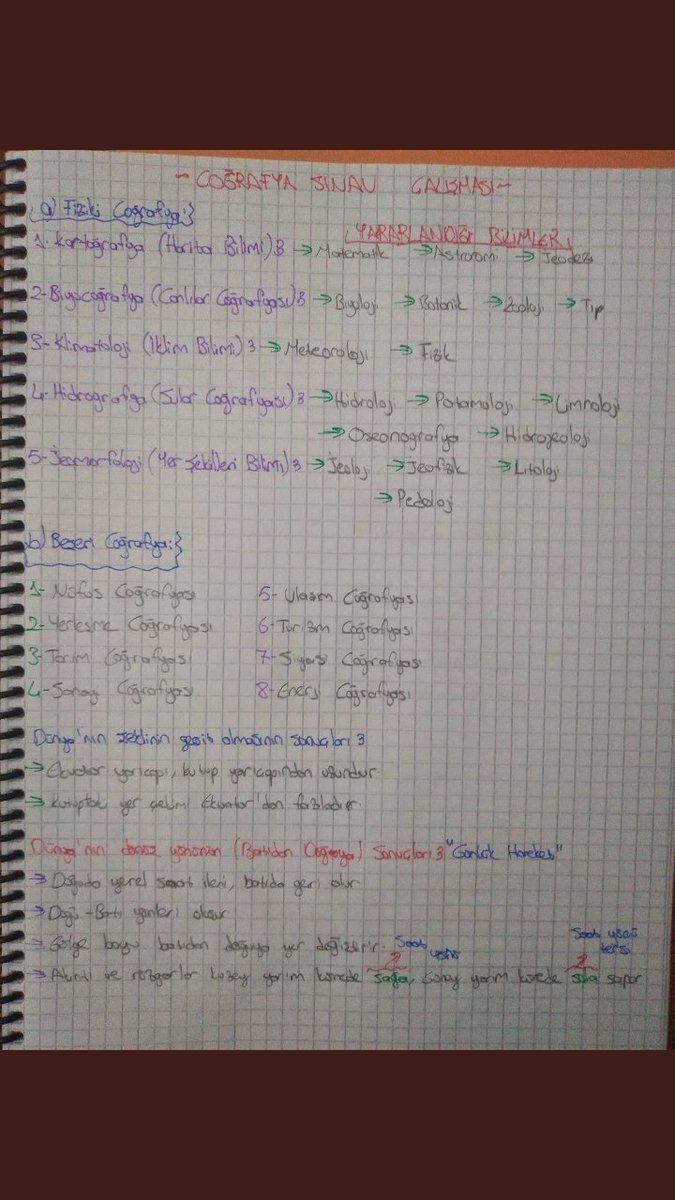 ~COĞRAFYA SINAV ÇALIŞMASI~
a) Fiziki Coğrafya:}
YARARLANDIĞI BİLİMLER
1- Kartoğrafya (Harita Bilimi) → Matematik → Astronomi → Jeodezi
2-Biyocoğrafya (Canlılar Coğrafyası) → Biyoloji → Botanik → Zooloji → Tıp
3-Klimatoloji (İklim Bilimi) → Meteoroloji → Fizik
4-Hidrografya (Sular Coğrafyası) → Hidroloji → Potamoloji → Limnoloji
→ Oseonografya → Hidrojeoloji
5-Jeomorfoloji (Yer Şekilleri Bilimi) → Jeoloji → Jeofizik → Litoloji
→ Pedoloji
b) Beşeri Coğrafya:}
1- Nüfus Coğrafyası 5- Ulaşım Coğrafyası
2-Yerleşme Coğrafyası 6-Turizm Coğrafyası
3-Tarım Coğrafyası 7-Siyasi Coğrafyası
4-Sanayi Coğrafyası 8-Enerji Coğrafyası
Dünya'nın şeklinin geoit olmasının sonuçları
→ Ekvator yarıçapı, kutup yarıçapından uzundur.
→ Kutuptaki yer çekimi Ekvator'dan fazladır.
Dünya'nın (Batıdan Doğuya) Sonuçları "Günlük Hareket"
→ Doğuda yerel saat ileri, batıda geri olur
→ Doğu-Batı yönleri oluşur
→ Gölge boyu batıdan doğuya yer değiştirir.
Saat yönü
Saat yönü tersi
→ Akıntı ve rüzgarlar kuzey yarım kürede sağa, Güney yarım kürede sola sapar